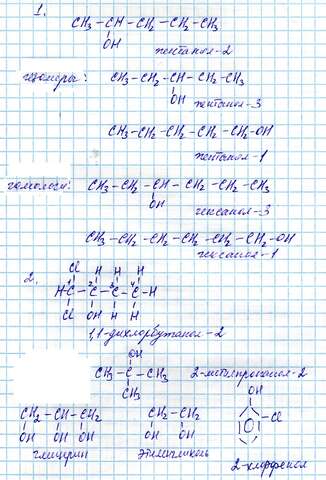 1.
CH₃ – CH – CH₂ – CH₂ – CH₃
OH
пентанол – 2
изомеры: CH₃ – CH₂ – CH – CH₂ – CH₃
OH
пентанол – 3
CH₃ – CH₂ – CH₂ – CH₂ – CH₂ – OH
пентанол – 1
гомологи: CH₃ – CH₂ – CH – CH₂ – CH₂ – CH₃
OH
гексанол – 3
CH₃ – CH₂ – CH₂ – CH₂ – CH₂ – CH₂ – OH
гексанол – 1
2.
Cl H H H
H – C¹ – C² – C³ – C⁴ – H
Cl OH H H
1,1-дихлорбутанол – 2
OH
CH₃ – C – CH₃
CH₃
2-метилпропанол – 2
OH
Cl
CH₂ – CH – CH₂ CH₂ – CH₂
OH OH OH OH OH
глицерин этиленгликоль
2-хлорфенол